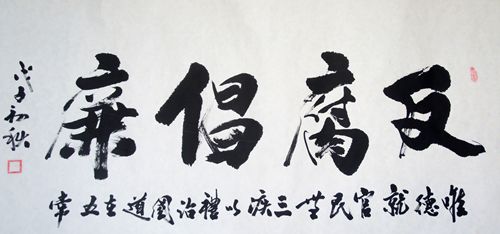 反腐倡廉
唯德就官民無三疾以禮治國道在五常
戊子初秋